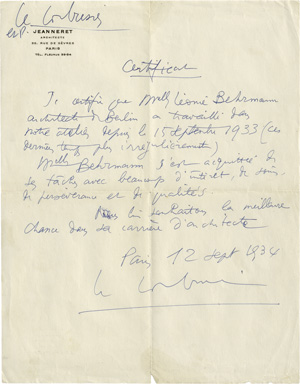 Le Corbusier
et P. JEANNERET
ARCHITECTE
35, RUE DE SÈVRES
PARIS
TÉL. FLEURUS
Certificat
Je certifie que Melle Léonie Behrmann
architecte de Berlin a travaillé dans
notre atelier depuis le 15 septembre 1933 (ces
derniers temps plus irrégulièrement)
Melle Behrmann s'est acquittée de
ses tâches avec beaucoup d'intérêt, de soin,
de persévérance et de qualités
Nous lui souhaitons la meilleure
chance dans sa carrière d'architecte
Paris 12 sept 1934
Le Corbusier